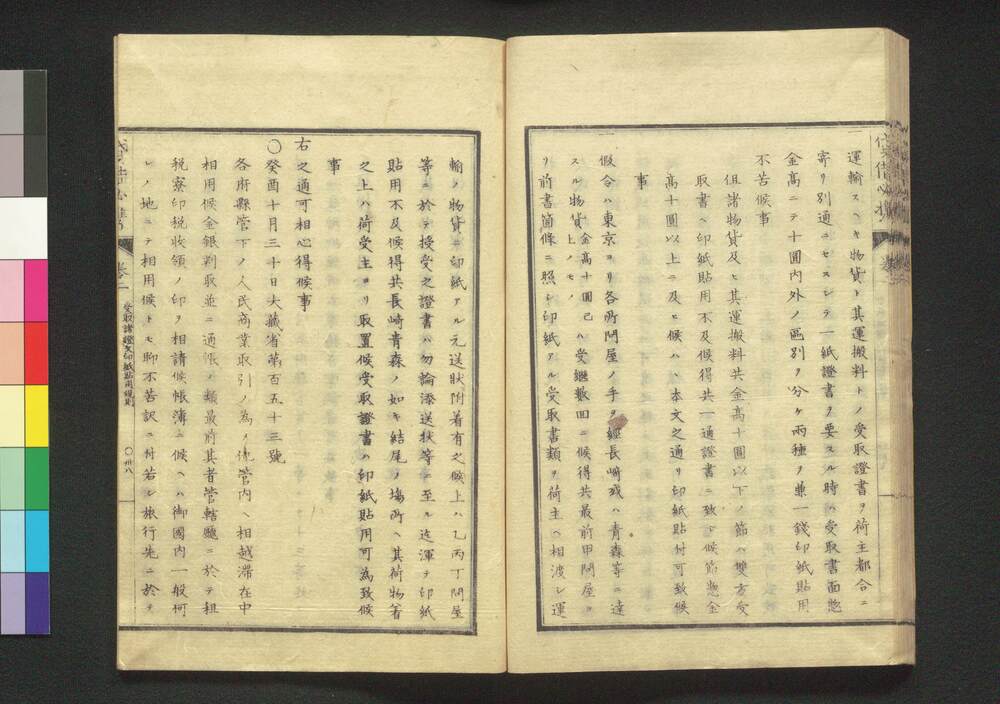 運輸スヘキ物貨ト其運搬料トノ受取證書ヲ荷主都合ニ
寄リ別通ニセスシテ一紙證書ヲ要スル時ハ受取書面惣
金高ニテ十圓内外ノ區別ヲ分ケ兩種ヲ兼一錢印紙貼用
不苦候事
但諸物貨及ヒ其運搬料共金高十圓以下ノ節ハ雙方受
取書ヘ印紙貼用不及候得共一通證書ニ致シ候節惣金
高十圓以上ニ及ヒ候ハヽ本文之通リ印紙貼付可致候
事
假令ハ東京ヨリ各所問屋ノ手ヲ經長崎或ハ青森等ニ達
スル物貨金高十圓已上ノモノハ受繼數回ニ候得共最前甲問屋ヨ
リ前書箇條ニ照シ印紙アル受取書類ヲ荷主ヘ相渡シ運
輸ノ物貨ニ印紙アル元送狀附着有之候上ハ乙丙丁問屋
等ニ於テ授受之證書ハ勿論添送狀等ニ至ル迄渾テ印紙
貼用不及候得共長崎青森ノ如キ結尾ノ塲所ヘ其荷物着
之上ハ荷受主ヨリ取置候受取證書ハ印紙貼用可為致候
事
右之通可相心得候事
〇癸酉十月三十日大藏省第百五十三號
各府縣管下ノ人民商業取引ノ為メ他管内ヘ相越滯在中
相用候金銀判取並ニ通帳ノ類最前其者管轄廳ニ於テ租
税寮印税收領ノ印ヲ相請候帳簿ニ候ヘハ御國内一般何
レノ地ニテ相用候トモ聊不苦訳ニ付若シ旅行先ニ於テ
卷二
受取諸證文印紙貼用規則
〇卅八